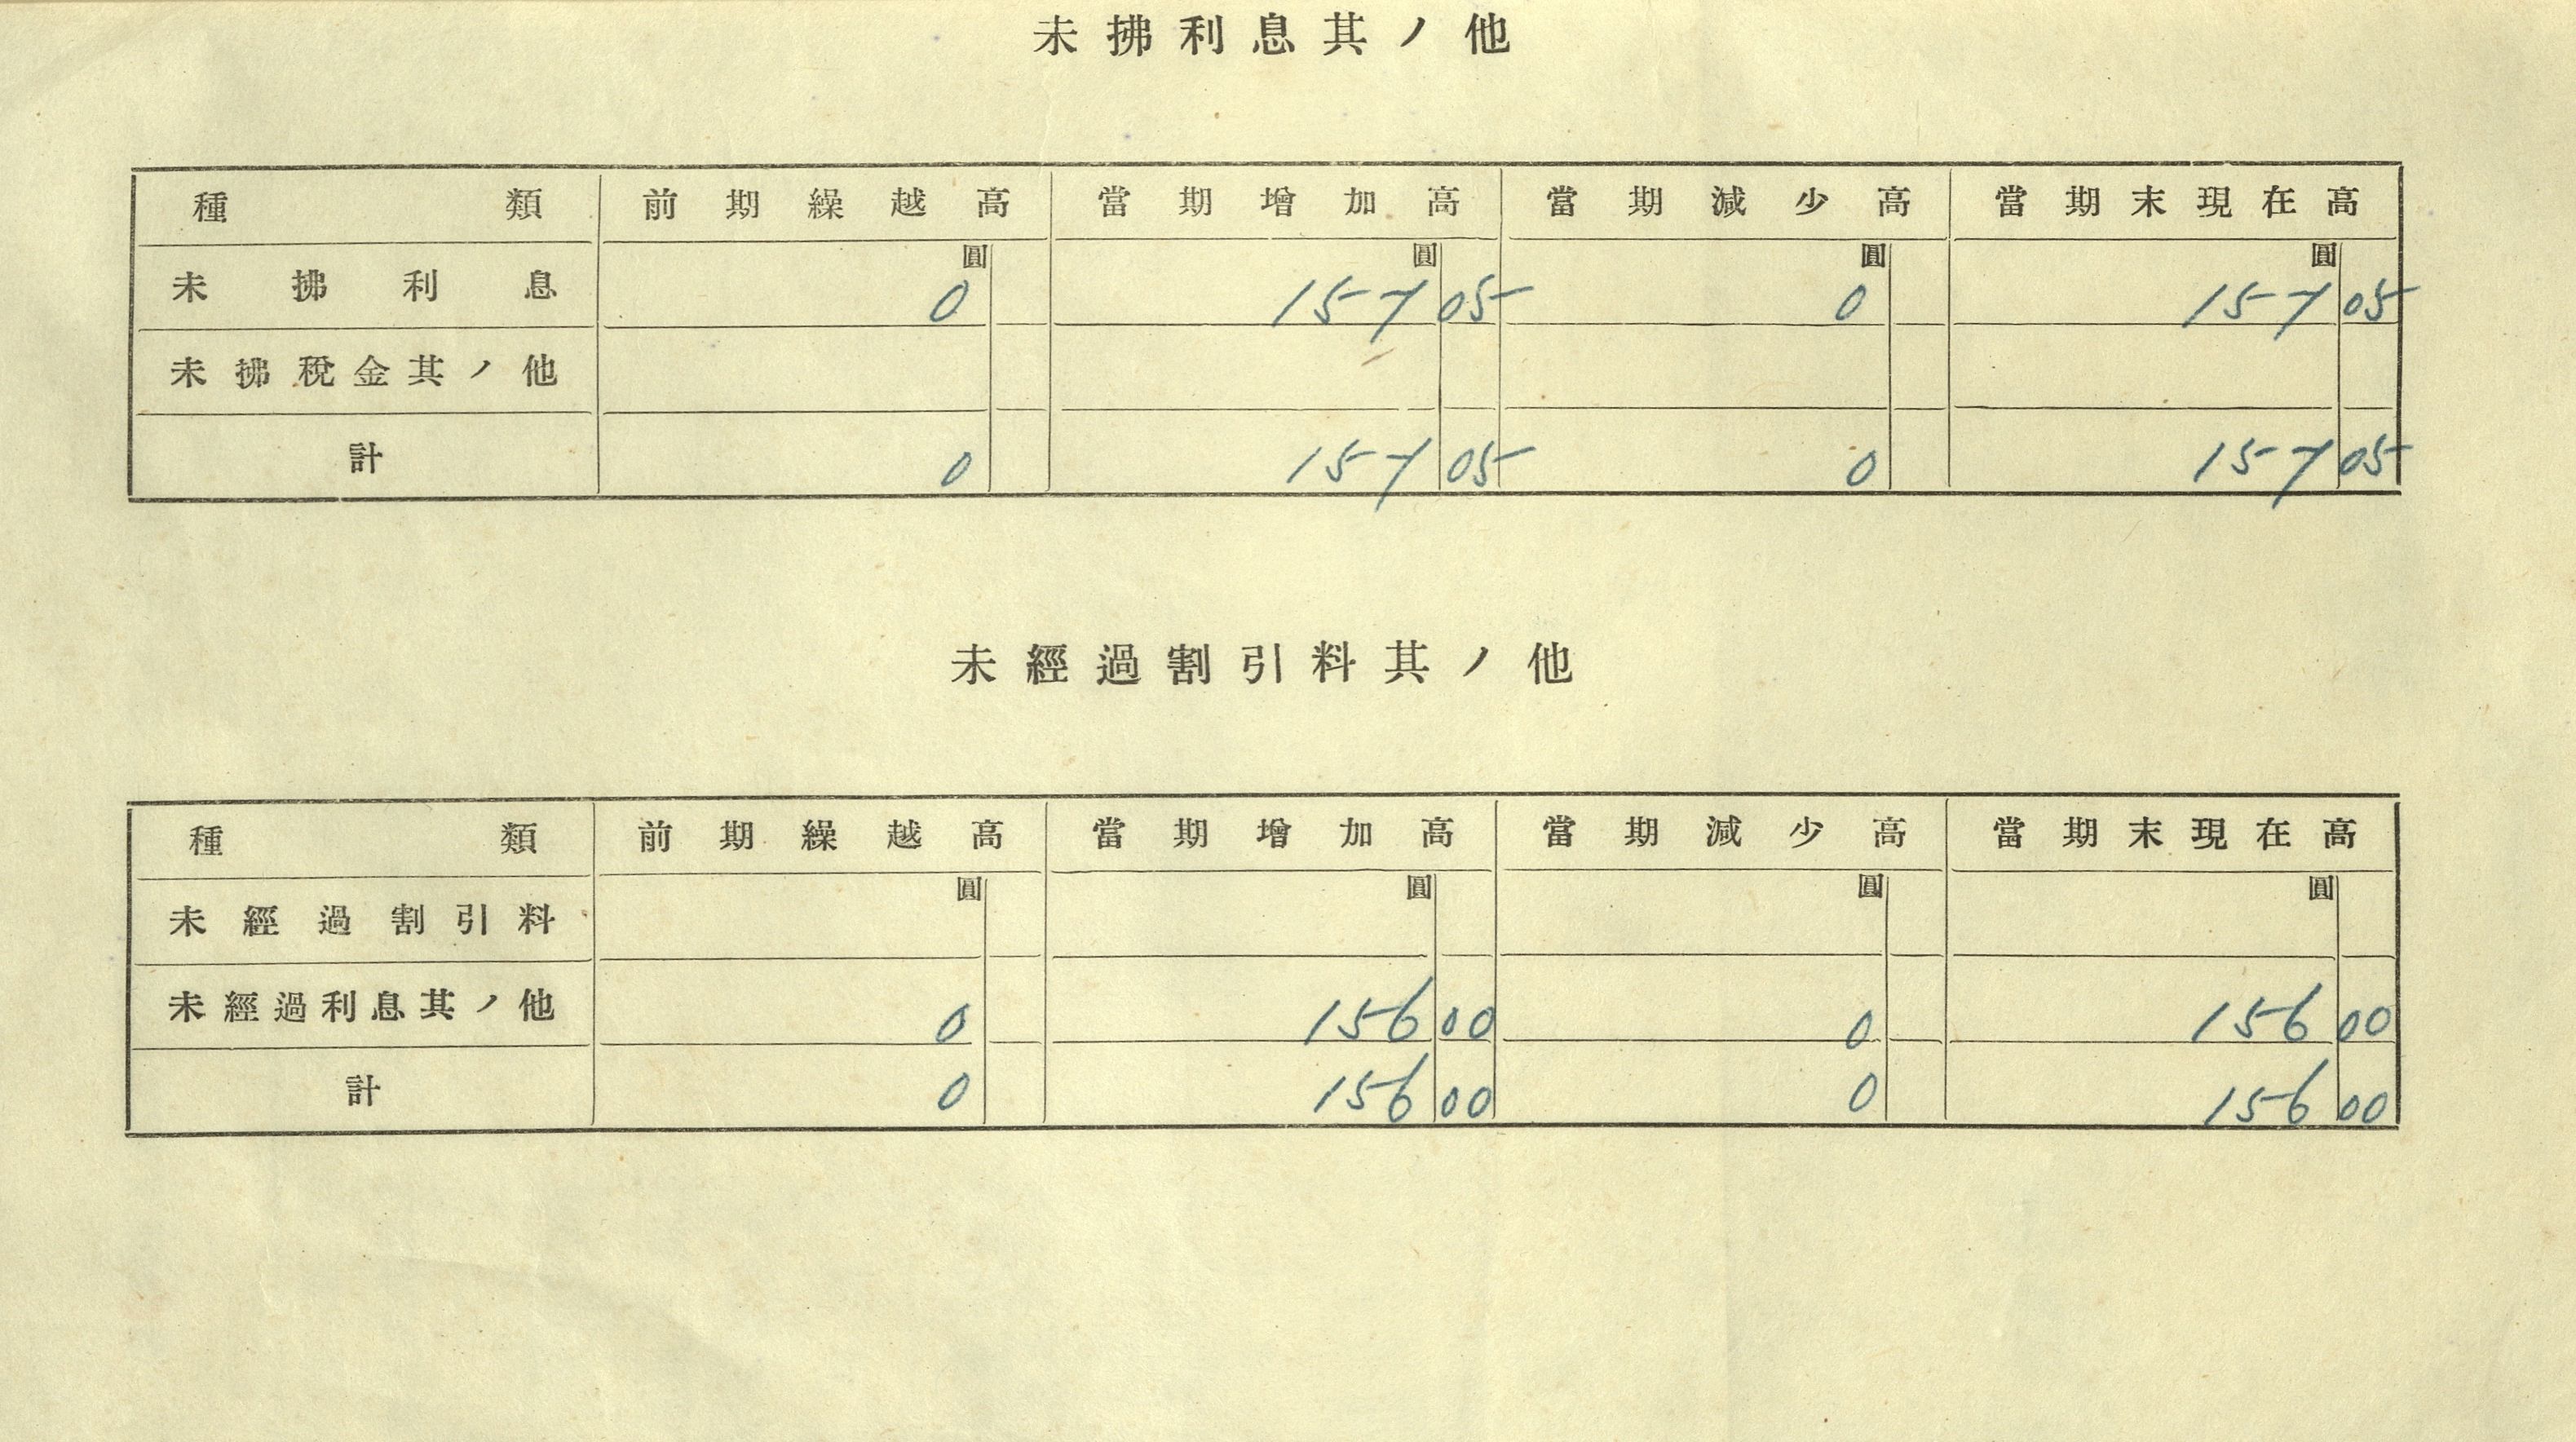 未拂利息其ノ他
種類 前期繰越高 當期增加高 當期減少高 當期末現在高
圓 圓 圓 圓
未拂利息 0 157 05 0 157 05
未拂稅金其ノ他
計 0 157 05 0 157 05
未經過割引料其ノ他
種類 前期繰越高 當期增加高 當期減少高 當期末現在高
圓 圓 圓 圓
未經過割引料
未經過利息其ノ他 0 156 00 0 156 00
計 0 156 00 0 156 00